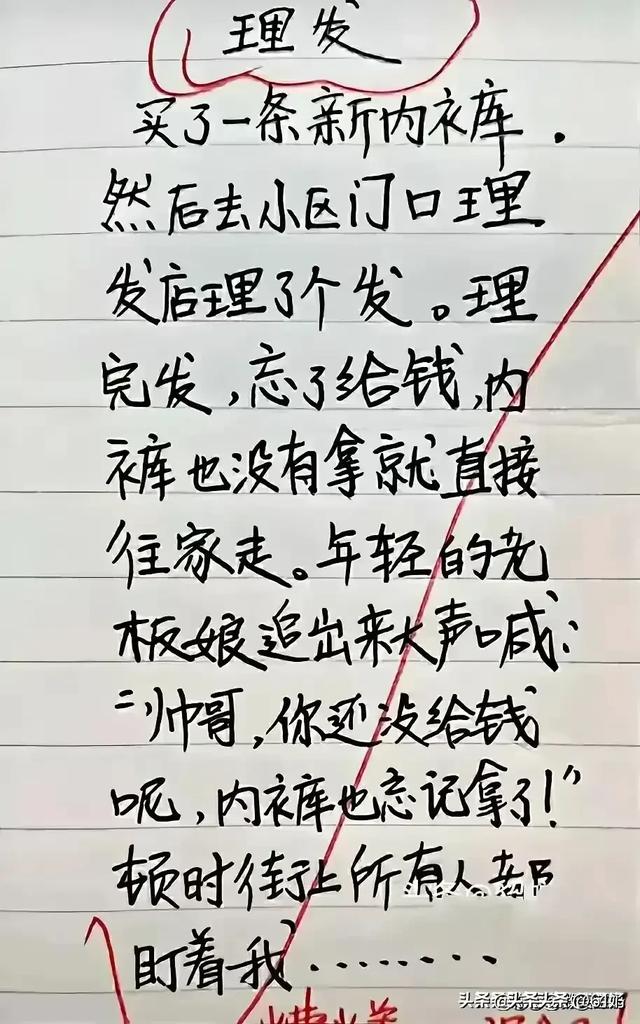 理发
买了一条新内裤.
然后去小区门口理
发店理了个发。理
完发,忘了给钱,内
裤也没有拿就直接
往家走。年轻的老
板娘追出来大声喊:
“帅哥,你还没给钱
呢,内裤也忘记拿了!”
顿时街上所有人都
盯着我········